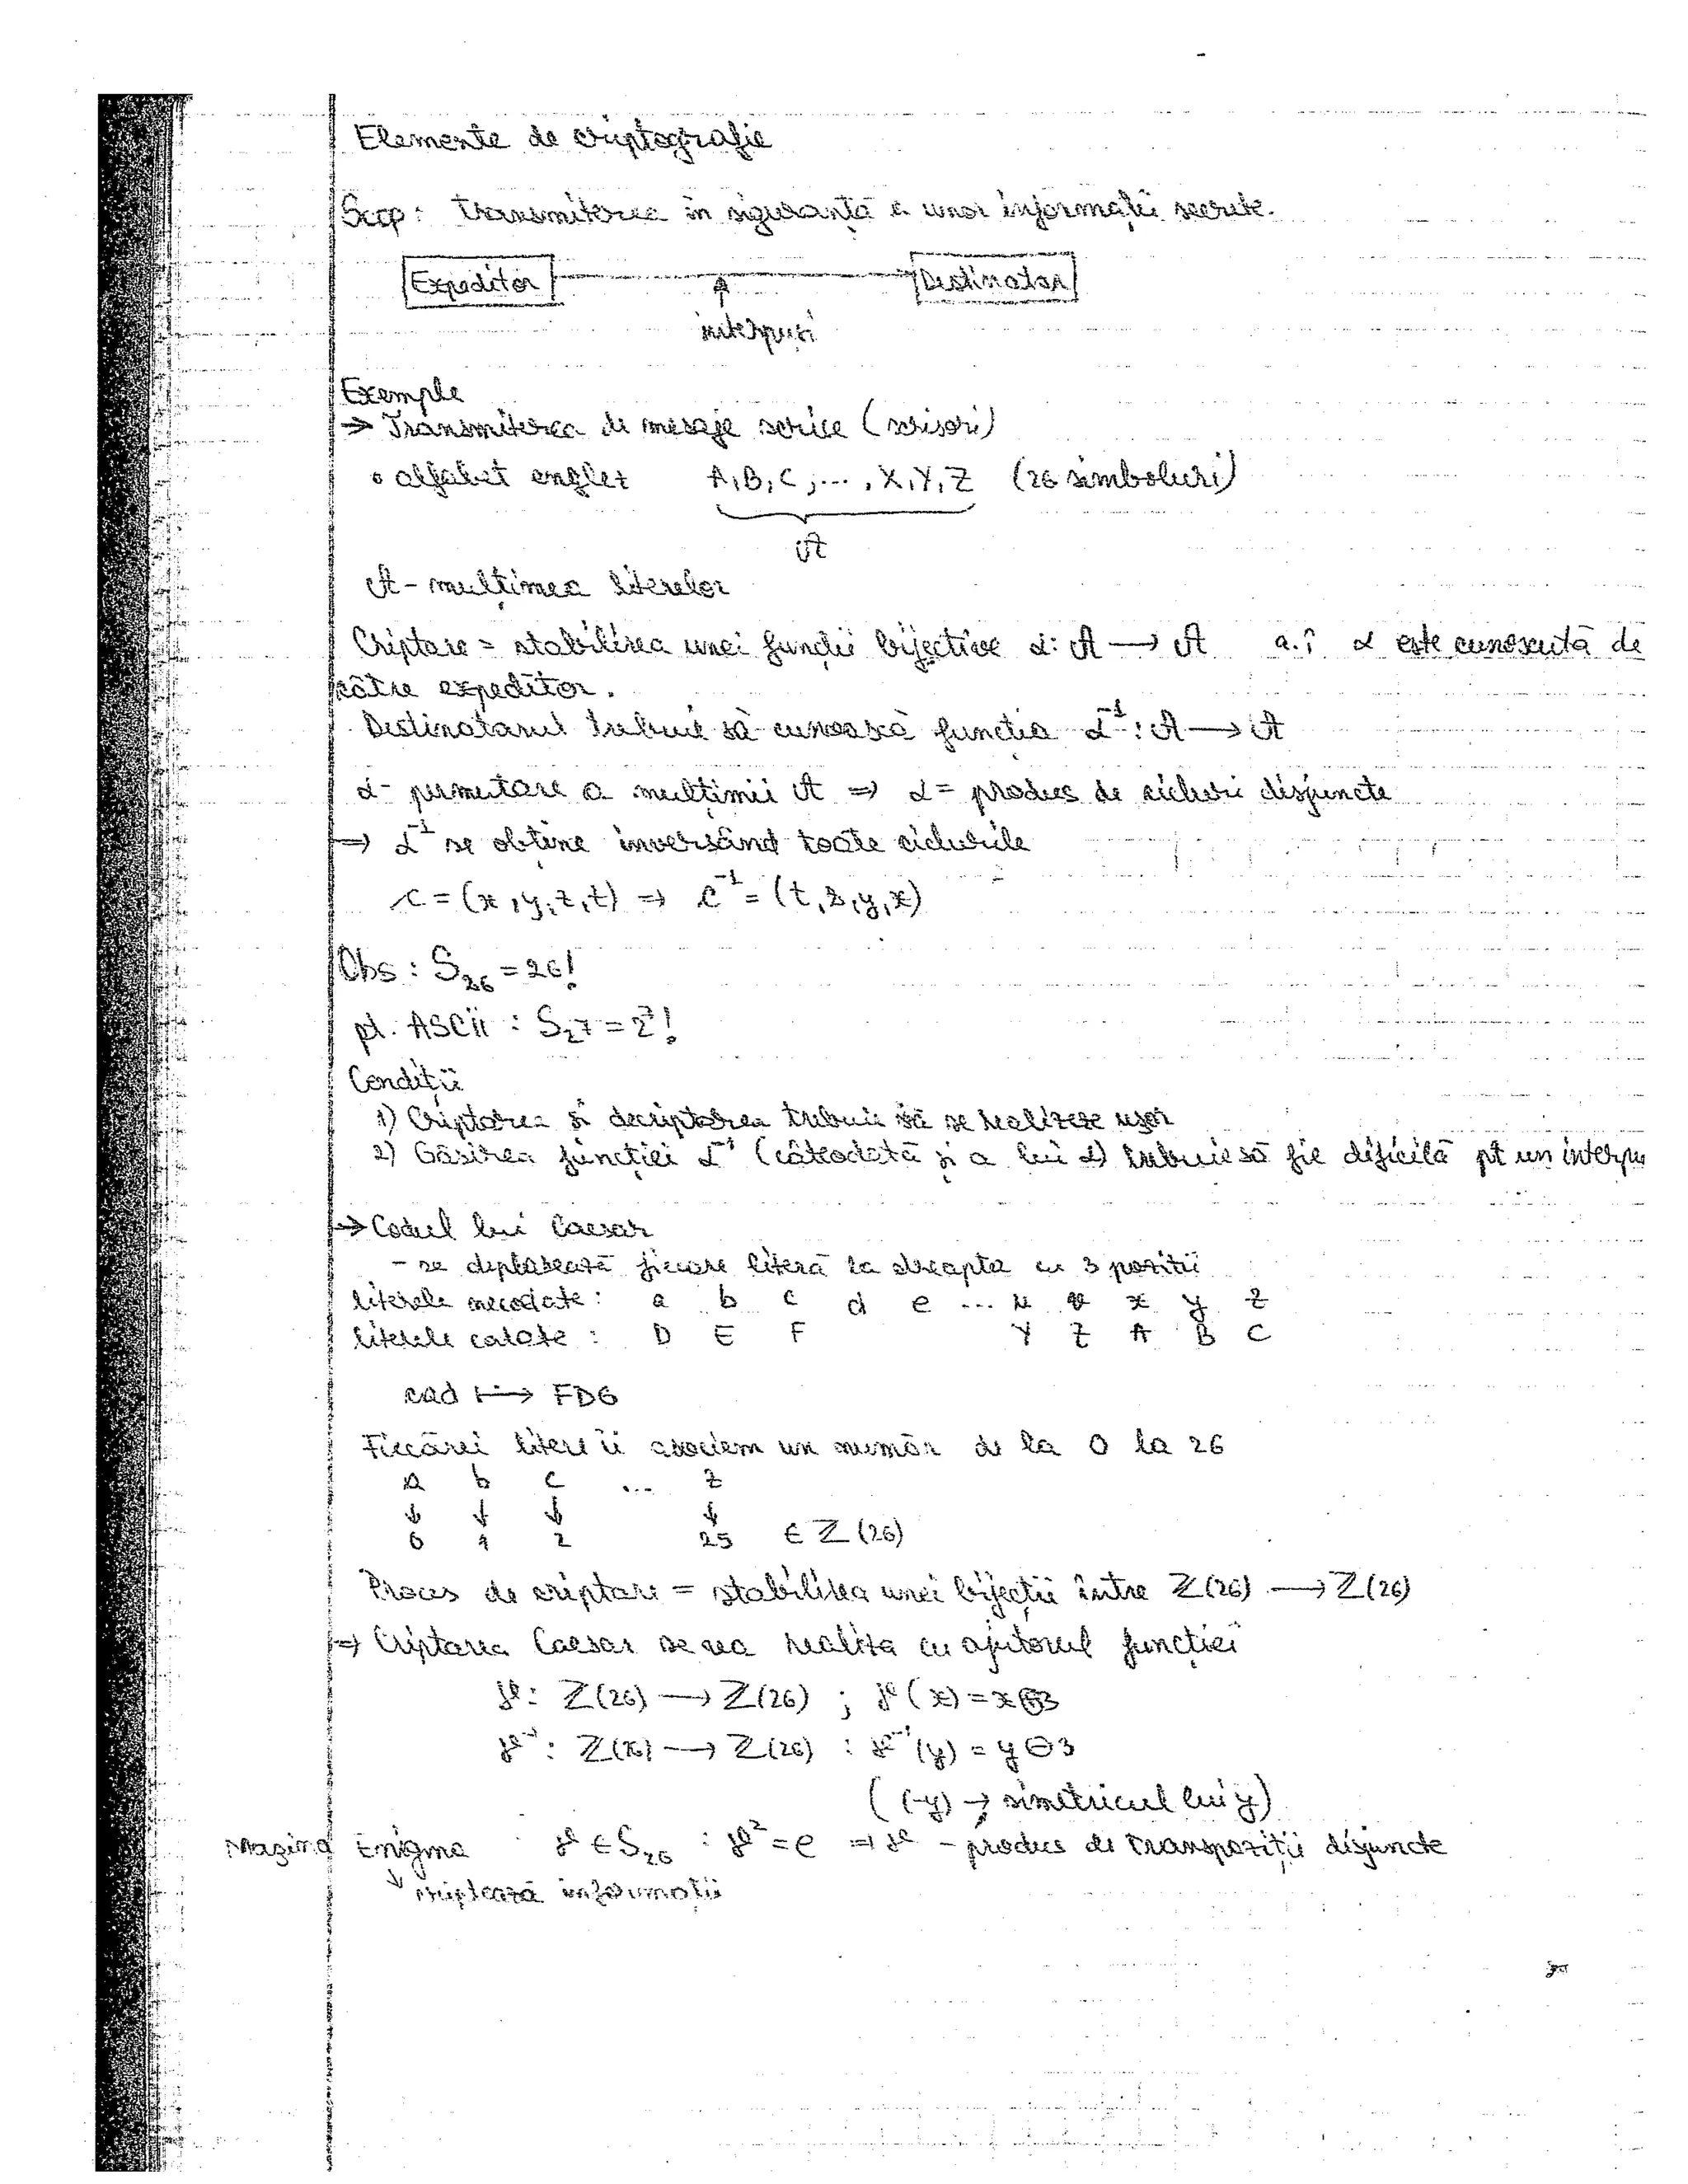 Elemente de criptografie
Scop: transmiterea în siguranță a unor informații secrete.
Expeditor Destinatar
interpuși
Exemple
→ Transmiterea de mesaje scrise (scrisori)
• alfabet englez A,B,C,...,X,Y,Z (26 simboluri)
A
A - mulțimea literelor
Criptare = stabilirea unei funcții bijective α: A → A a.î α este cunoscută de
către expeditor.
Destinatarul trebuie să cunoască funcția α⁻¹: A → A
α - permutare a mulțimii A ⇒ α = produs de cicluri disjuncte
⇒ α⁻¹ se obține inversând toate ciclurile
c = (x,y,z,t) ⇒ c⁻¹ = (t,z,y,x)
Obs: S₂₆ = 26!
pt. ASCii : S₂7 = 2⁷!
Condiții
1) Criptarea și decriptarea trebuie să se realizeze ușor
2) Găsirea funcției α⁻¹ (câteodată și a lui α) trebuie să fie dificilă pt un interpu
→ Codul lui Caesar
- se deplasează fiecare literă la dreapta cu 3 poziții
literele necodate: a b c d e ... u v x y z
literele codate: D E F Y Z A B C
cad ↦ FDG
Fiecărei litere îi asociem un număr de la 0 la 26
a b c ... z
↓ ↓ ↓ ↓
0 1 2 25 ∈ Z(26)
Proces de criptare = stabilirea unei bijecții între Z(26) → Z(26)
⇒ Criptarea Caesar se va realiza cu ajutorul funcției
γ: Z(26) → Z(26) ; γ(x) = x⊕3
γ⁻¹: Z(26) → Z(26) : γ⁻¹(y) = y⊖3
((-y) → simetricul lui y)
Mașina Enigma γ ∈ S₂₆ : γ² = e ⇒ γ - produs de transpoziții disjuncte
↓ criptează informații